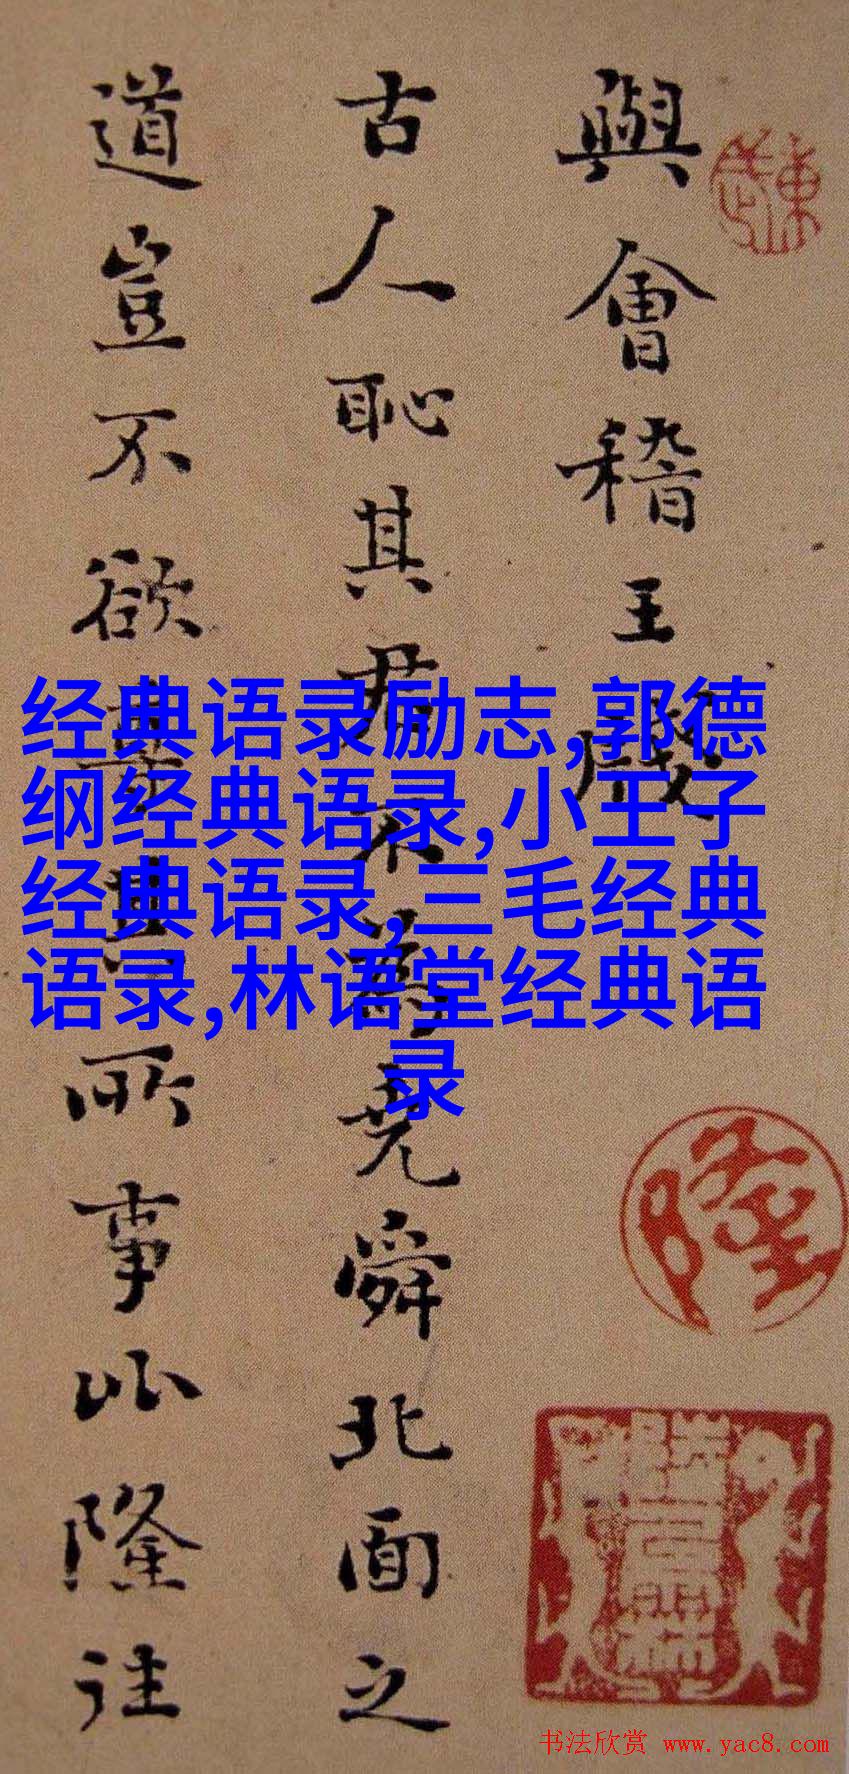 與會稽王牋
古人恥其君不為堯舜北面之
道豈不欲尊其所事比隆往
经典语录励志,郭德
纲经典语录,小王子
经典语录,三毛经典
语录,林语堂经典语
录
隆
书法欣赏 www.yac8.com